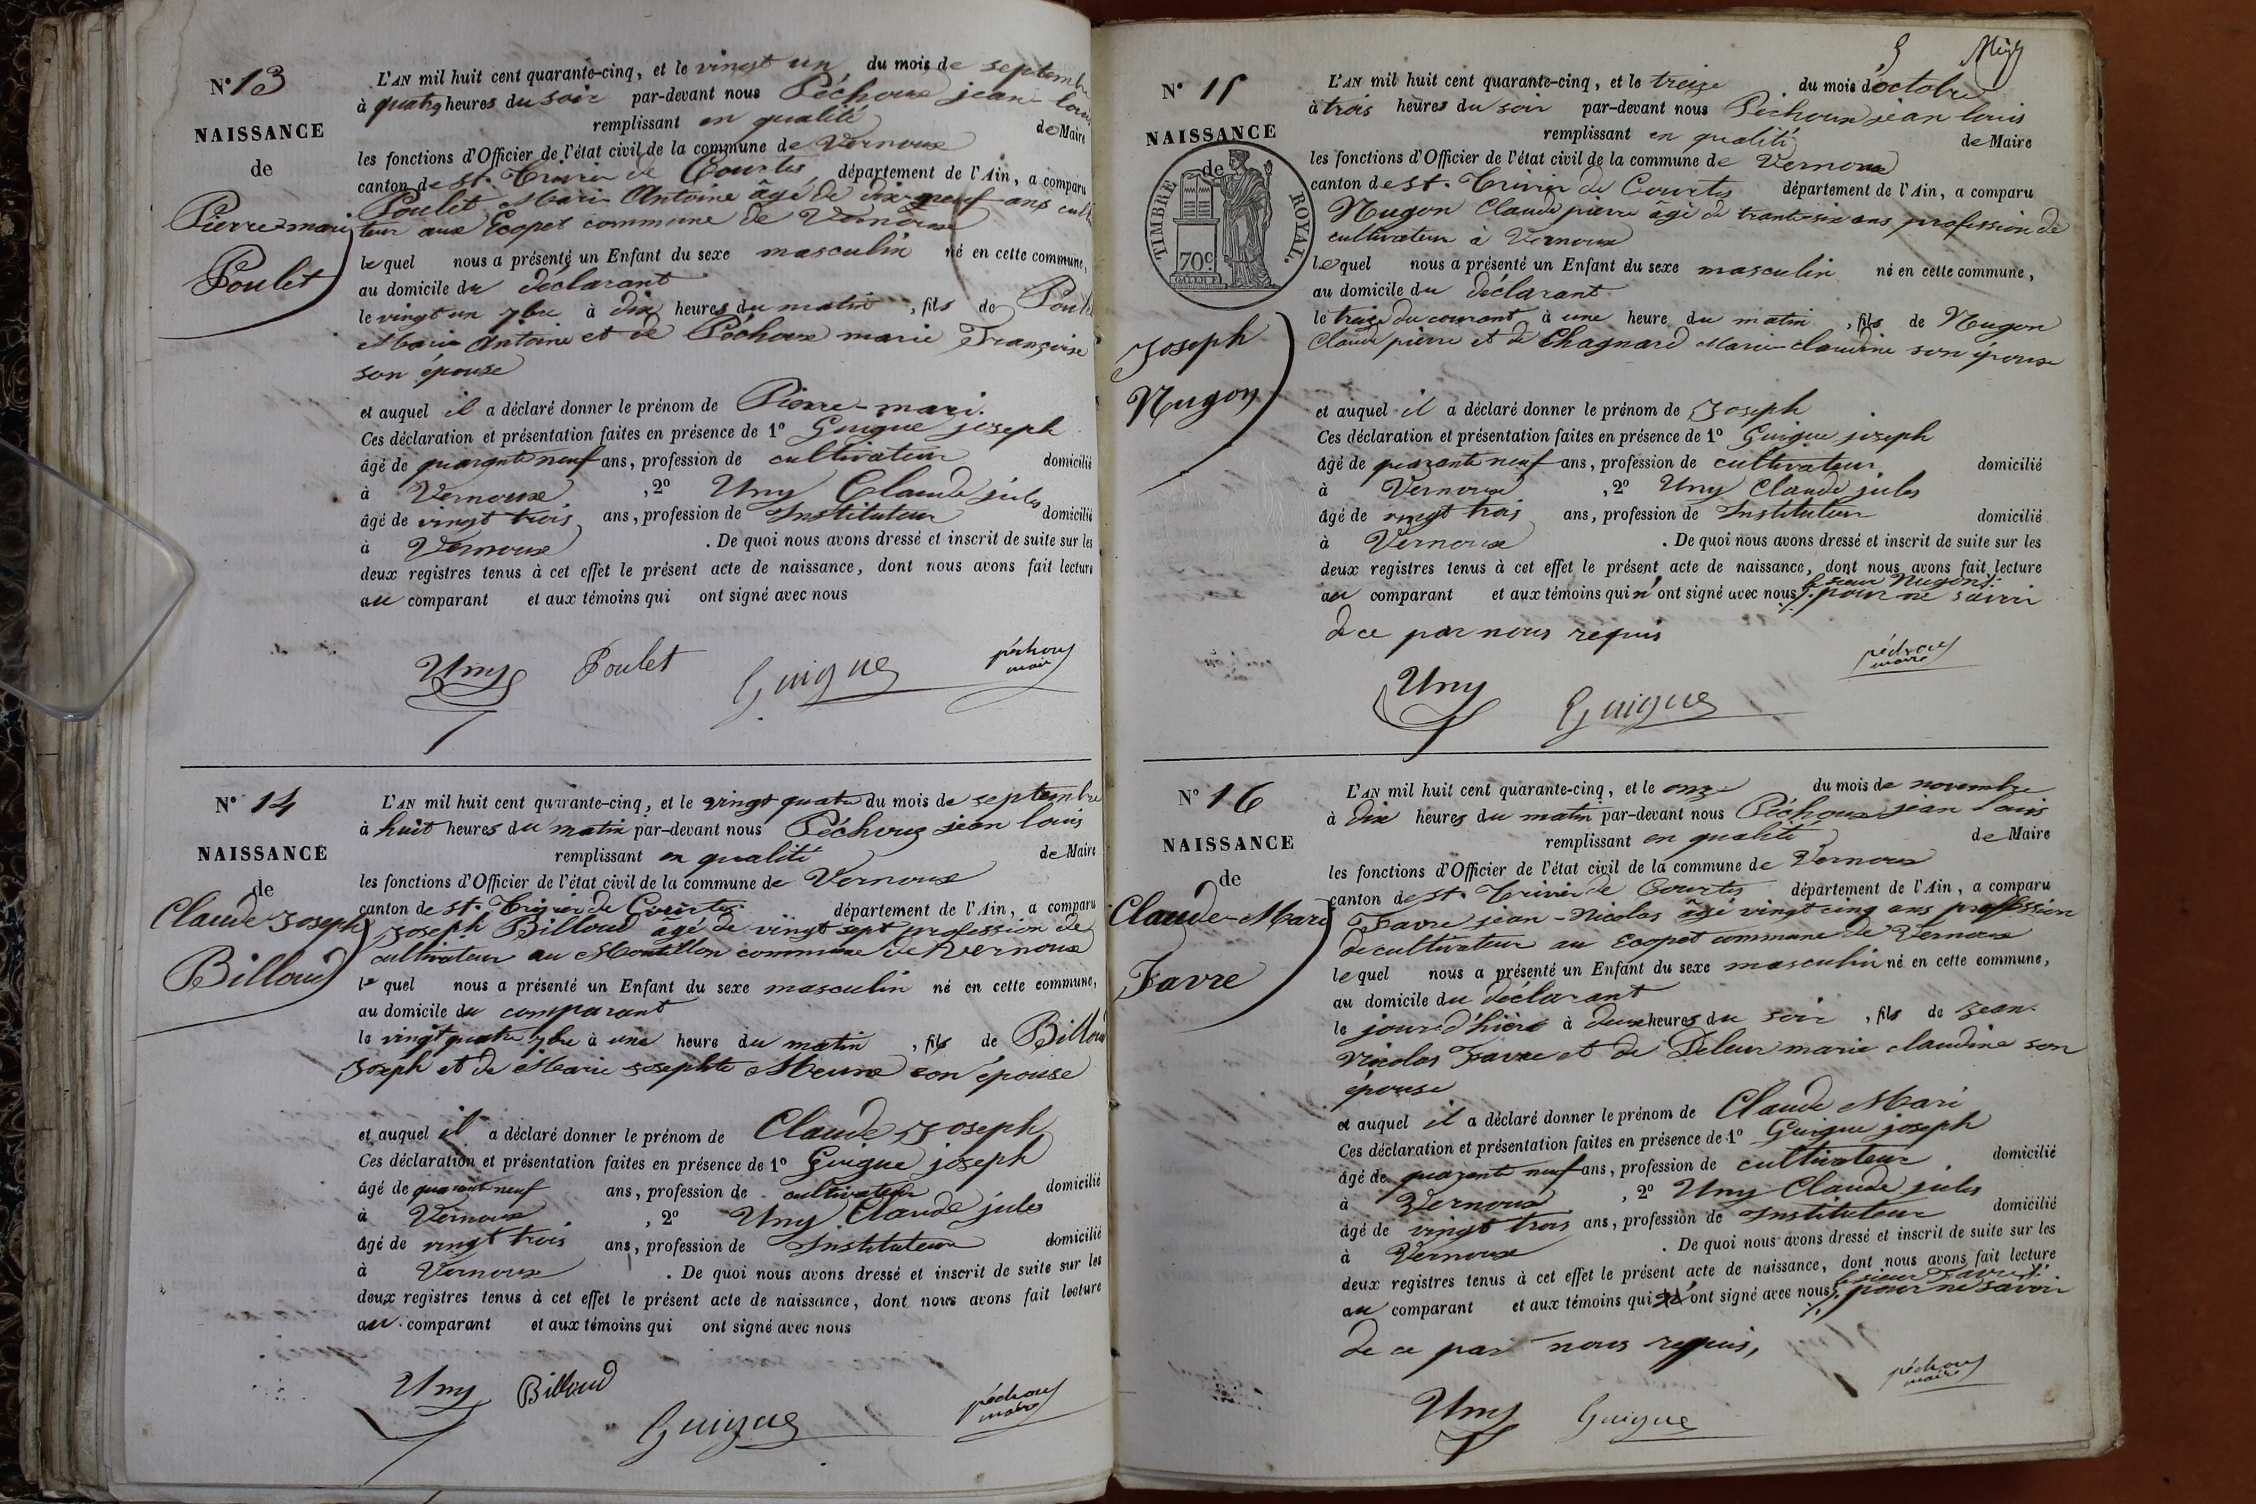 N° 13
NAISSANCE
de
Pierre-mari
Poulet
L'AN mil huit cent quarante-cinq, et le vingt un du mois de septembre
à quatre heures du soir par-devant nous Péchoux jean louis
remplissant en qualité de Maire
les fonctions d'Officier de l'état civil de la commune de Vernoux
canton de St. Trivier de Courtes département de l'Ain, a comparu
Poulet Marie Antoine âgé de dix-neuf ans culti
teur aux Ecopet commune de Vernoux
lequel nous a présenté un Enfant du sexe masculin né en cette commune,
au domicile du déclarant
le vingt un 7bre à dix heures du matin, fils de Poulet
Marie Antoine et de Péchoux marie Françoise
son épouse
et auquel il a déclaré donner le prénom de Pierre-mari.
Ces déclaration et présentation faites en présence de 1° Guigue joseph
âgé de quarante neuf ans, profession de cultivateur domicilié
à Vernoux, 2° Uny Claude jules
âgé de vingt trois ans, profession de Instituteur domicilié
à Vernoux. De quoi nous avons dressé et inscrit de suite sur les
deux registres tenus à cet effet le présent acte de naissance, dont nous avons fait lecture
au comparant et aux témoins qui ont signé avec nous
Uny Poulet Guigue péchoux
maire
N° 14
NAISSANCE
de
Claude-Joseph
Billoud
L'AN mil huit cent quarante-cinq, et le vingt quatre du mois de septembre
à huit heures du matin par-devant nous Péchoux jean louis
remplissant en qualité de Maire
les fonctions d'Officier de l'état civil de la commune de Vernoux
canton de St. Trivier de Courtes département de l'Ain, a comparu
Joseph Billoud agé de vingt sept profession de
cultivateur au Montillon commune de Vernoux
lequel nous a présenté un Enfant du sexe masculin né en cette commune,
au domicile du comparant
le vingt quatre 7bre à une heure du matin, fils de Billoud
Joseph et de Marie Josephte son épouse
et auquel il a déclaré donner le prénom de Claude Joseph
Ces déclaration et présentation faites en présence de 1° Guigue joseph
âgé de quarante neuf ans, profession de cultivateur domicilié
à Vernoux, 2° Uny Claude jules
âgé de vingt trois ans, profession de Instituteur domicilié
à Vernoux. De quoi nous avons dressé et inscrit de suite sur les
deux registres tenus à cet effet le présent acte de naissance, dont nous avons fait lecture
au comparant et aux témoins qui ont signé avec nous
Uny Billoud Guigue péchoux
maire
N° 15
NAISSANCE
de
TIMBRE ROYAL.
70c.
Joseph
Nugon
L'AN mil huit cent quarante-cinq, et le treize du mois d'octobre
à trois heures du soir par-devant nous Péchoux jean louis
remplissant en qualité de Maire
les fonctions d'Officier de l'état civil de la commune de Vernoux
canton de St. Trivier de Courtes département de l'Ain, a comparu
Nugon Claude pierre âgé de trante-six ans profession de
cultivateur à Vernoux
lequel nous a présenté un Enfant du sexe masculin né en cette commune,
au domicile du déclarant
le treize du courant à une heure du matin, fils de Nugon
Claude pierre et de Chagnard Marie-claudine son épouse
et auquel il a déclaré donner le prénom de Joseph
Ces déclaration et présentation faites en présence de 1° Guigue joseph
âgé de quarante neuf ans, profession de cultivateur domicilié
à Vernoux, 2° Uny Claude jules
âgé de vingt trois ans, profession de Instituteur domicilié
à Vernoux. De quoi nous avons dressé et inscrit de suite sur les
deux registres tenus à cet effet le présent acte de naissance, dont nous avons fait lecture
le sieur Nugon
au comparant et aux témoins qui n'ont signé avec nous pour ne savoir
de ce par nous requis
Uny Guigue péchoux
maire
N° 16
NAISSANCE
de
Claude-Mari
Favre
L'AN mil huit cent quarante-cinq, et le onze du mois de novembre
à dix heures du matin par-devant nous Péchoux jean louis
remplissant en qualité de Maire
les fonctions d'Officier de l'état civil de la commune de Vernoux
canton de St. Trivier de Courtes département de l'Ain, a comparu
Favre jean-Nicolas âgé vingt cinq ans profession
de cultivateur au Ecopet commune de Vernoux
lequel nous a présenté un Enfant du sexe masculin né en cette commune,
au domicile du déclarant
le jour d'hière à deux heures du soir, fils de jean-
Nicolas Favre et de Deleur marie claudine son
épouse
et auquel il a déclaré donner le prénom de Claude Mari
Ces déclaration et présentation faites en présence de 1° Guigue joseph
âgé de quarante neuf ans, profession de cultivateur domicilié
à Vernoux, 2° Uny Claude jules
âgé de vingt trois ans, profession de Instituteur domicilié
à Vernoux. De quoi nous avons dressé et inscrit de suite sur les
deux registres tenus à cet effet le présent acte de naissance, dont nous avons fait lecture
le sieur Favre
au comparant et aux témoins qui ont signé avec nous pour ne savoir
de ce par nous requis,
Uny Guigue péchoux
maire